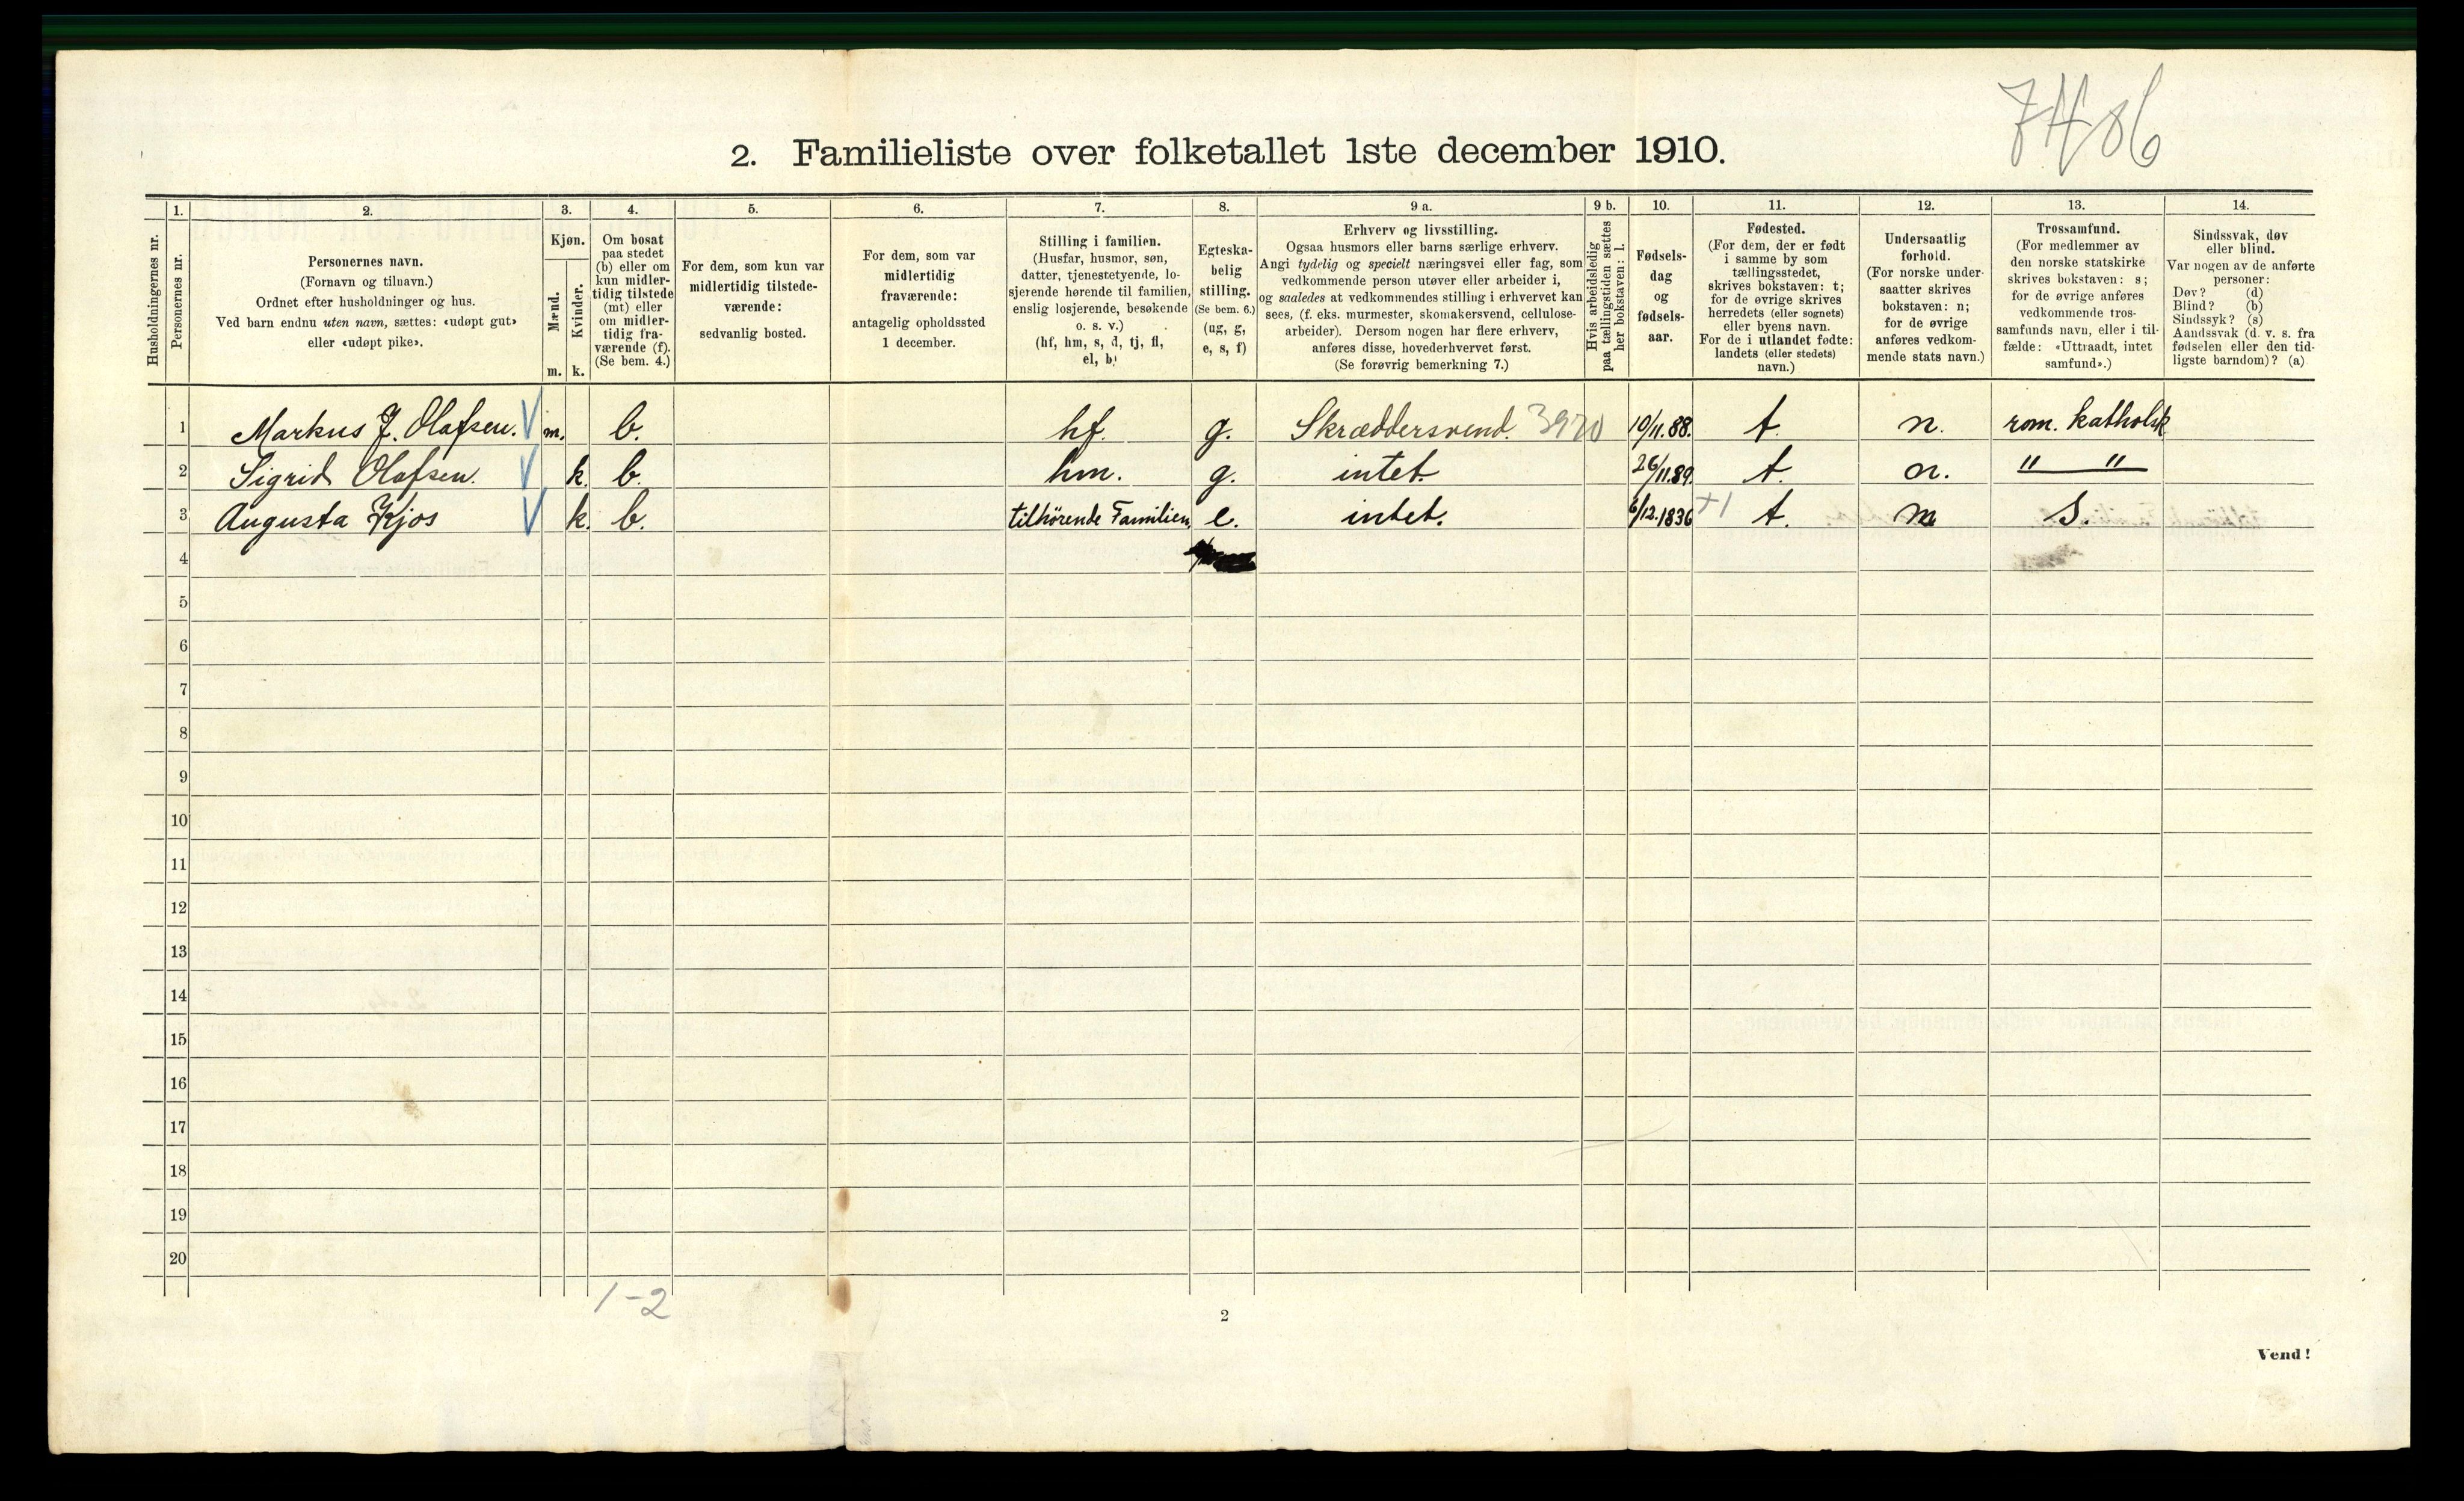 7486
2. Familieliste over folketallet 1ste december 1910.
Husholdningernes nr.
1. Personernes nr.
2. Personernes navn.
(Fornavn og tilnavn.)
Ordnet efter husholdninger og hus.
Ved barn endnu uten navn, sættes: «udøpt gut»
eller «udøpt pike».
3. Kjøn.
Mænd. m.
Kvinder. k.
4. Om bosat
paa stedet
(b) eller om
kun midler-
tidig tilstede
(mt) eller
om midler-
tidig fra-
værende (f).
(Se bem. 4.)
5. For dem, som kun var
midlertidig tilstede-
værende:
sedvanlig bosted.
6. For dem, som var
midlertidig
fraværende:
antagelig opholdssted
1 december.
7. Stilling i familien.
(Husfar, husmor, søn,
datter, tjenestetyende, lo-
sjerende hørende til familien,
enslig losjerende, besøkende
o. s. v.)
(hf, hm, s, d, tj, fl,
el, b)
8. Egteska-
belig
stilling.
(Se bem. 6.)
(ug, g,
e, s, f)
9 a. Erhverv og livsstilling.
Ogsaa husmors eller barns særlige erhverv.
Angi tydelig og specielt næringsvei eller fag, som
vedkommende person utøver eller arbeider i,
og saaledes at vedkommendes stilling i erhvervet kan
sees, (f. eks. murmester, skomakersvend, cellulose-
arbeider). Dersom nogen har flere erhverv,
anføres disse, hovederhvervet først.
(Se forøvrig bemerkning 7.)
9 b. Hvis arbeidsledig
paa tællingstiden sættes
her bokstaven: l.
10. Fødsels-
dag
og
fødsels-
aar.
11. Fødested.
(For dem, der er født
i samme by som
tællingsstedet,
skrives bokstaven: t;
for de øvrige skrives
herredets (eller sognets)
eller byens navn.
For de i utlandet fødte:
landets (eller stedets)
navn.)
12. Undersaatlig
forhold.
(For norske under-
saatter skrives
bokstaven: n;
for de øvrige
anføres vedkom-
mende stats navn.)
13. Trossamfund.
(For medlemmer av
den norske statskirke
skrives bokstaven: s;
for de øvrige anføres
vedkommende tros-
samfunds navn, eller i til-
fælde: «Uttraadt, intet
samfund».)
14. Sindssvak, døv
eller blind.
Var nogen av de anførte
personer:
Døv? (d)
Blind? (b)
Sindssyk? (s)
Aandssvak (d. v. s. fra
fødselen eller den tid-
ligste barndom)? (a)
1 Markus J. Olafsen. V m. b. hf. g. Skræddersvend. 3970 10/11.88. t. n. rom. katholsk
2 Sigrid Olafsen. V k. b. hm. g. intet. 26/11.89. t. n. " — "
3 Augusta Kjos V k. b. tilhörende Familien, e. intet. 6/12.1836 +1 t. n. s.
4
5
6
7
8
9
10
11
12
13
14
15
16
17
18
19
20
1-2
2
Vend!